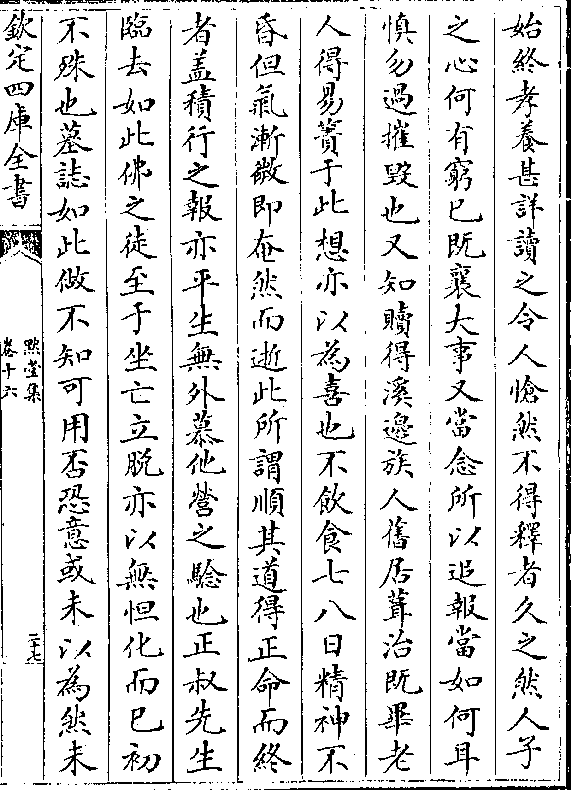 始終孝養甚詳讀之令人愴然不得釋者久之然人子
之心何有窮已既襄大事又當念所以追報當如何耳
慎勿過摧毀也又知贖得溪邉族人舊居葺治既畢老
人得易簀于此想亦以為喜也不飲食七八日精神不
昏但氣漸微即奄然而逝此所謂順其道得正命而終
者盖積行之報亦平生無外慕他營之驗也正叔先生
臨去如此佛之徒至于坐亡立脱亦以無怛化而已初
不殊也墓誌如此做不知可用否恐意或未以為然未
欽定四庫全書
黙堂集
卷十六
二十七